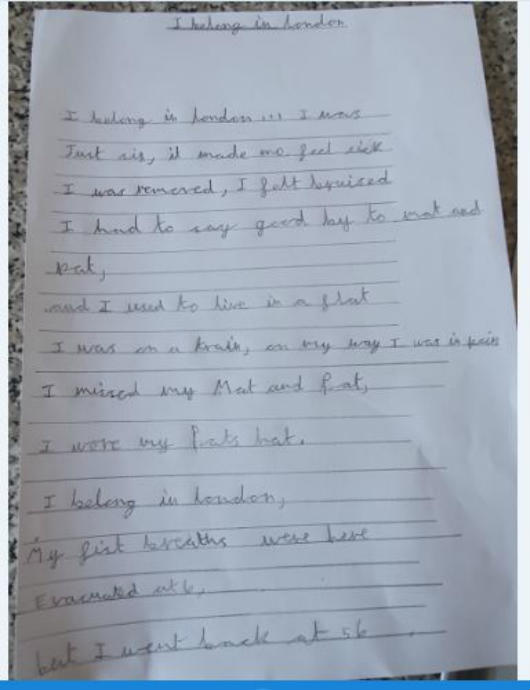 I belong in London
I belong in London... I was
Just sis, it made me feel sick
I was removed, I felt bruised
I had to say good by to mat and
pat,
and I used to live in a flat
I was on a train, on my way I was in pain
I missed my Mat and Pat,
I wore my Pats hat.
I belong in London,
My fist breaths were here
Evacuated at 6,
but I went back at 56